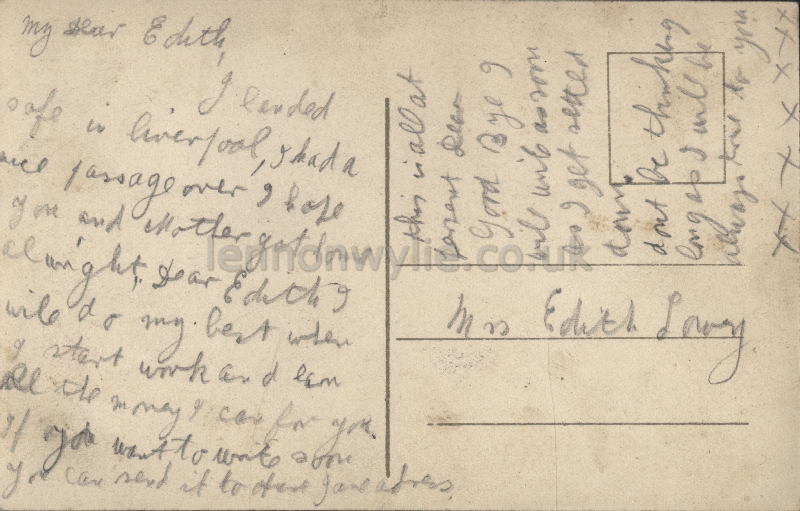 My Dear Edith,
I landed
safe in liverpool, I had a
nice passage over I hope
you and Mother got down
alwright, Dear Edith I
wile do my best when
I start work and earn
all the money I can for you.
If you want to write soon
you can send it to adress.
this is all at
present Dear
Good Bye I
will as soon
as I get setled
down.
dont be thinking
long as I will be
always true to you
x x x x x x x
Mrs Edith Lowry
lennonwylie.co.uk